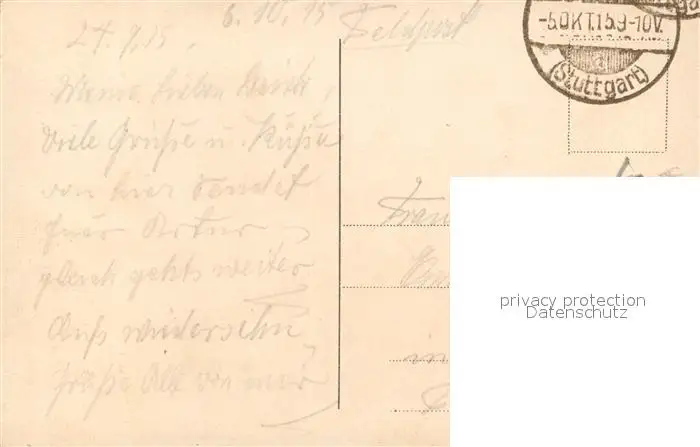 24.9.15.
6.10.15
Feldpost
-5.OKT.15.9-10V.
(Stuttgart)
Meine Lieben
Viele Grüße u. Küsse
von hier sendet
Euer Artur,
gleich gehts weiter
Aufs wiedersehn
Grüße Alle von mir
Frau
in
privacy protection
Datenschutz